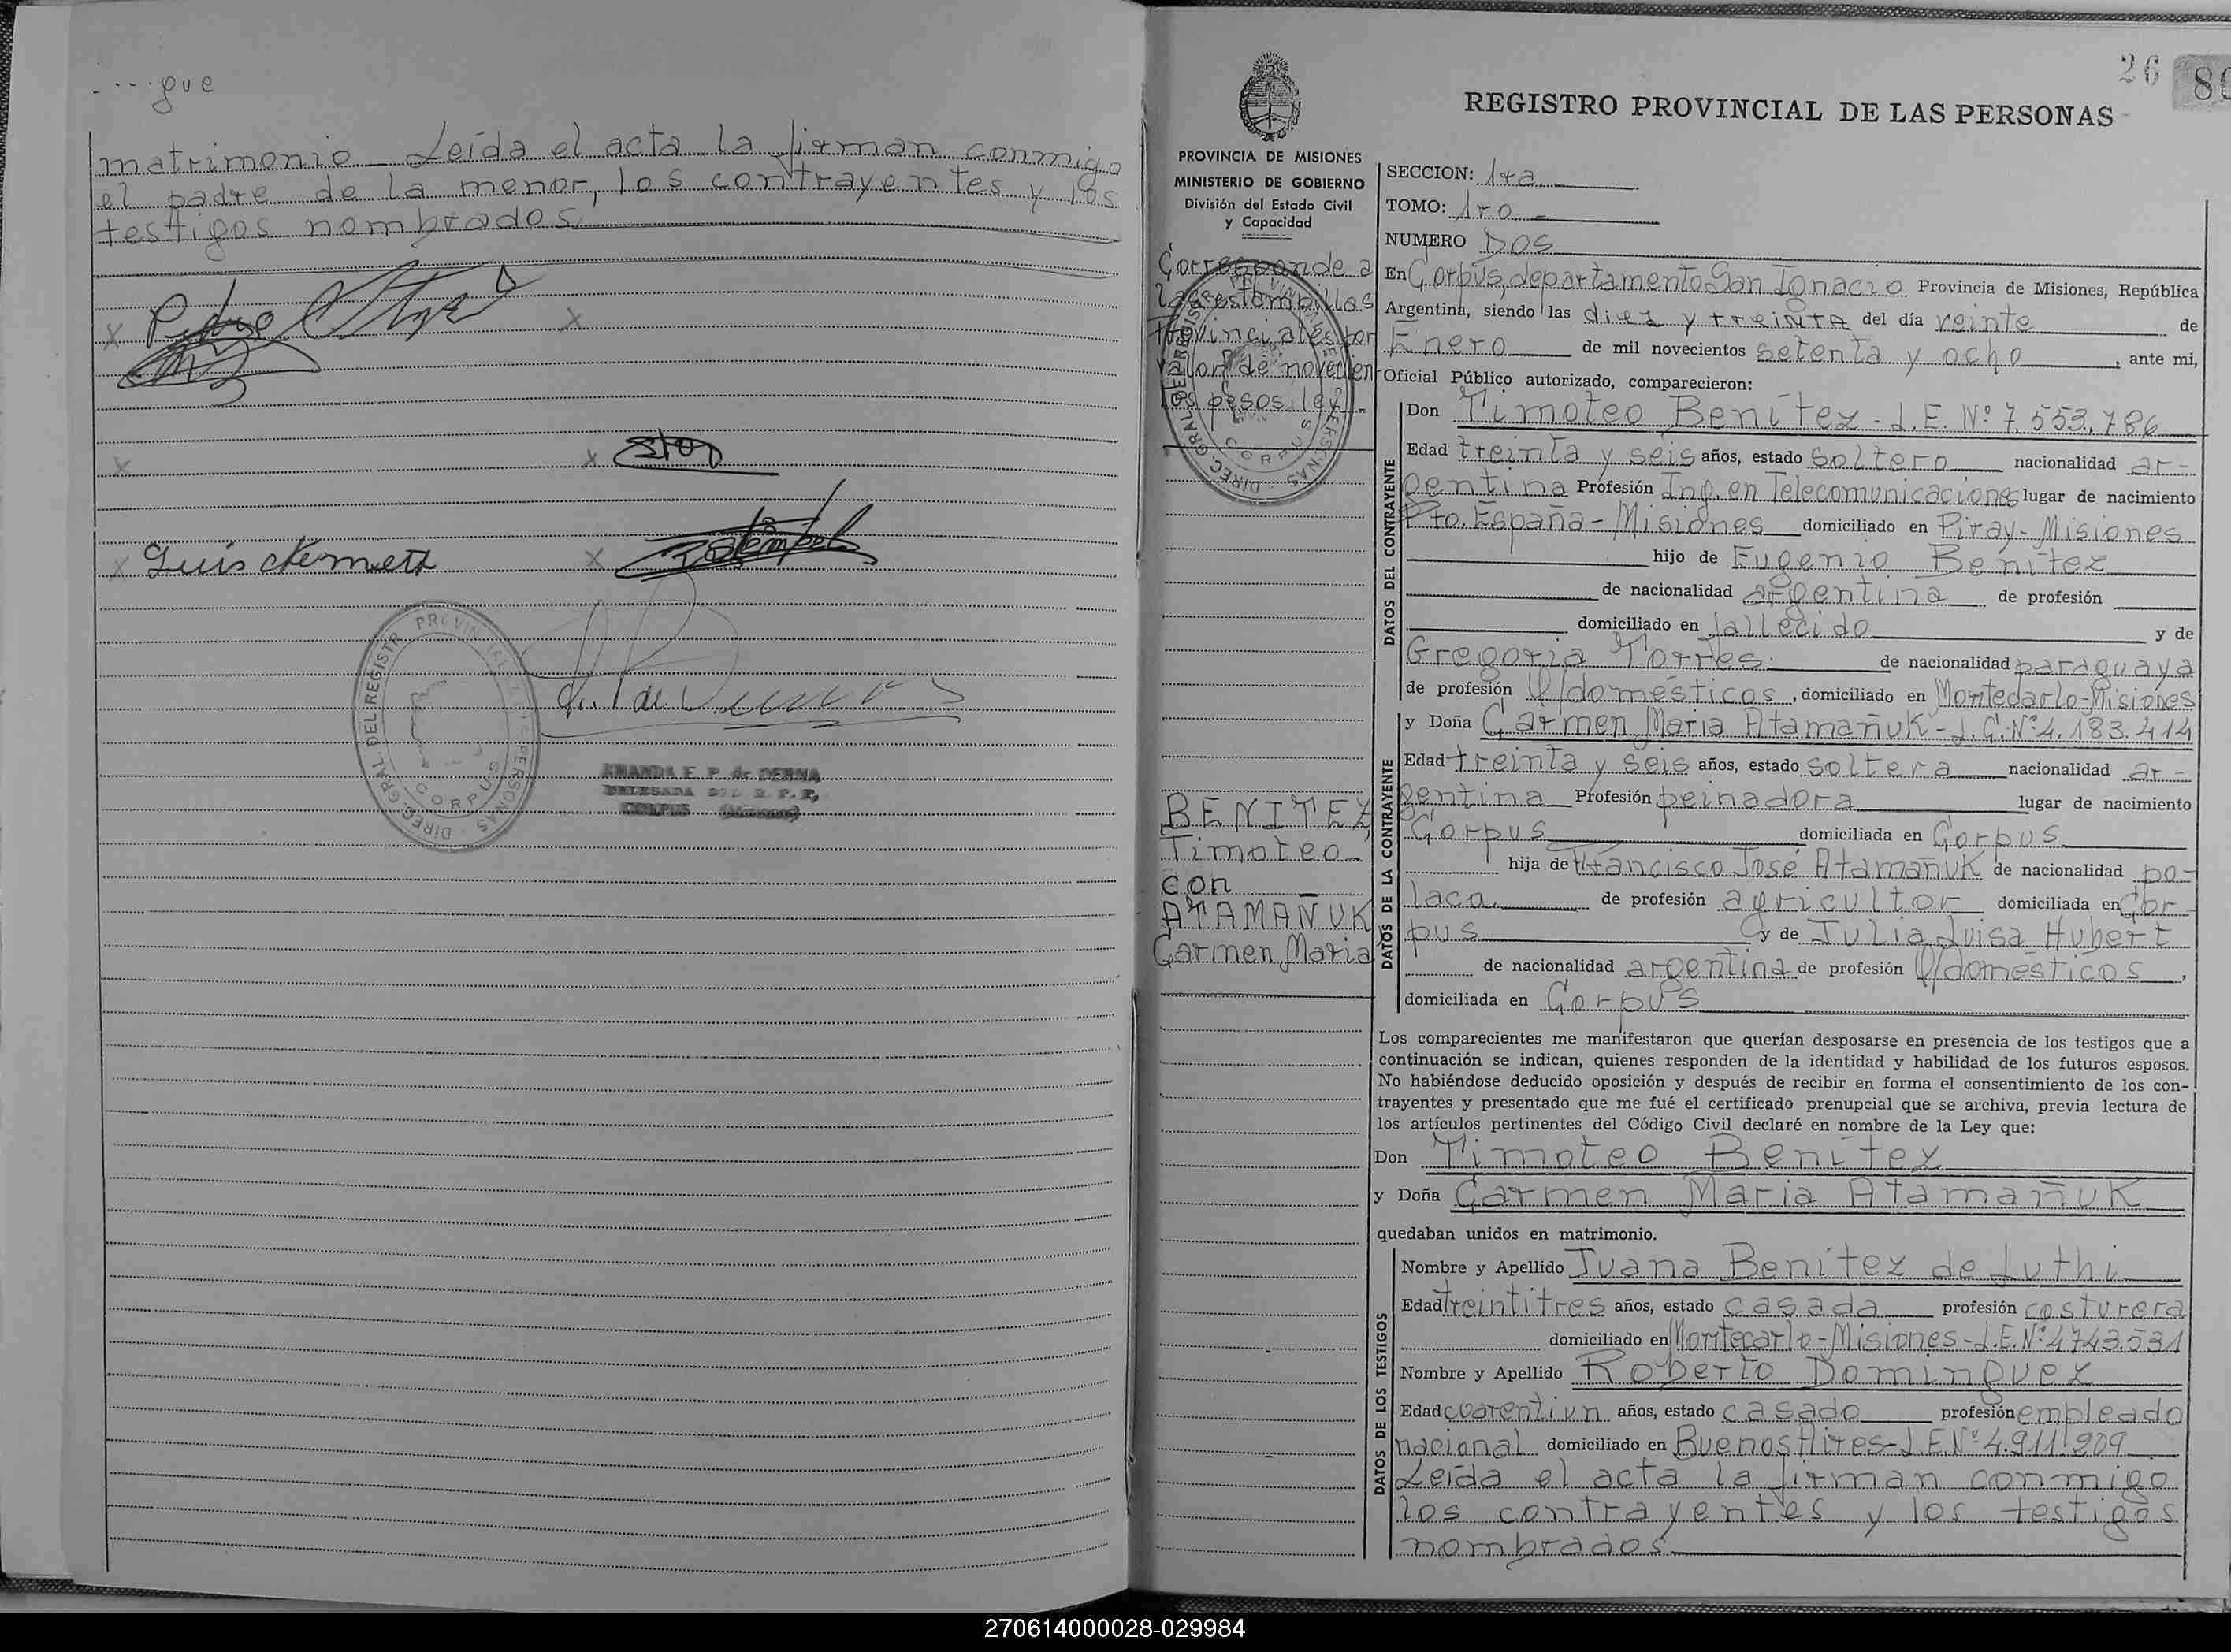 ....que
matrimonio - Leída el acta la firman conmigo
el padre de la menor, los contrayentes y los
testigos nombrados,
X Pedro X
X X
X Luis Nemeth X
DIREC. GRAL. DEL REGISTR PROVINCIAL PERSONAS
CORPUS
AMANDA E. P. de DERNA
DELEGADA DEL R. P. P.
CORPUS (Misiones)
26 80
REGISTRO PROVINCIAL DE LAS PERSONAS
PROVINCIA DE MISIONES
MINISTERIO DE GOBIERNO
División del Estado Civil
y Capacidad
Corresponde a
las estampillas
Provinciales por
valor de novecien-
tos pesos ley.-
BENITEZ
Timoteo
con
ATAMAÑUK
Carmen Maria
SECCION: 1ra.
TOMO: 1ro -
NUMERO DOS
En Corpus, departamento San Ignacio Provincia de Misiones, República
Argentina, siendo las diez y treinta del día veinte de
Enero de mil novecientos setenta y ocho, ante mi,
Oficial Público autorizado, comparecieron:
DATOS DEL CONTRAYENTE
Don Timoteo Benítez - L.E. Nº 7.553.786
Edad treinta y seis años, estado soltero nacionalidad ar-
gentina Profesión Ing. en Telecomunicaciones lugar de nacimiento
Pto. España - Misiones domiciliado en Piray - Misiones
hijo de Eugenio Benítez
de nacionalidad argentina de profesión
domiciliado en fallecido y de
Gregoria Torres. de nacionalidad paraguaya
de profesión Q/domésticos, domiciliado en Montecarlo-Misiones
DATOS DE LA CONTRAYENTE
y Doña Carmen Maria Atamañuk - L.C. Nº 4.183.414
Edad treinta y seis años, estado soltera nacionalidad ar-
gentina Profesión peinadora lugar de nacimiento
Corpus domiciliada en Corpus
hija de Francisco José Atamañuk de nacionalidad po-
laca de profesión agricultor domiciliada en Cor-
pus y de Julia Luisa Hubert
de nacionalidad argentina de profesión Q/domésticos,
domiciliada en Corpus
Los comparecientes me manifestaron que querían desposarse en presencia de los testigos que a
continuación se indican, quienes responden de la identidad y habilidad de los futuros esposos.
No habiéndose deducido oposición y después de recibir en forma el consentimiento de los con-
trayentes y presentado que me fué el certificado prenupcial que se archiva, previa lectura de
los artículos pertinentes del Código Civil declaré en nombre de la Ley que:
Don Timoteo Benítez
y Doña Carmen Maria Atamañuk
quedaban unidos en matrimonio.
DATOS DE LOS TESTIGOS
Nombre y Apellido Juana Benítez de Luthi
Edad treintitres años, estado casada profesión costurera
domiciliado en Montecarlo-Misiones-L.E. Nº 4743.531
Nombre y Apellido Roberto Dominguez
Edad cuarentiun años, estado casado profesión empleado
nacional domiciliado en Buenos Aires-L.E. Nº 4.911.209
Leída el acta la firman conmigo
los contrayentes y los testigos
nombrados
270614000028-029984